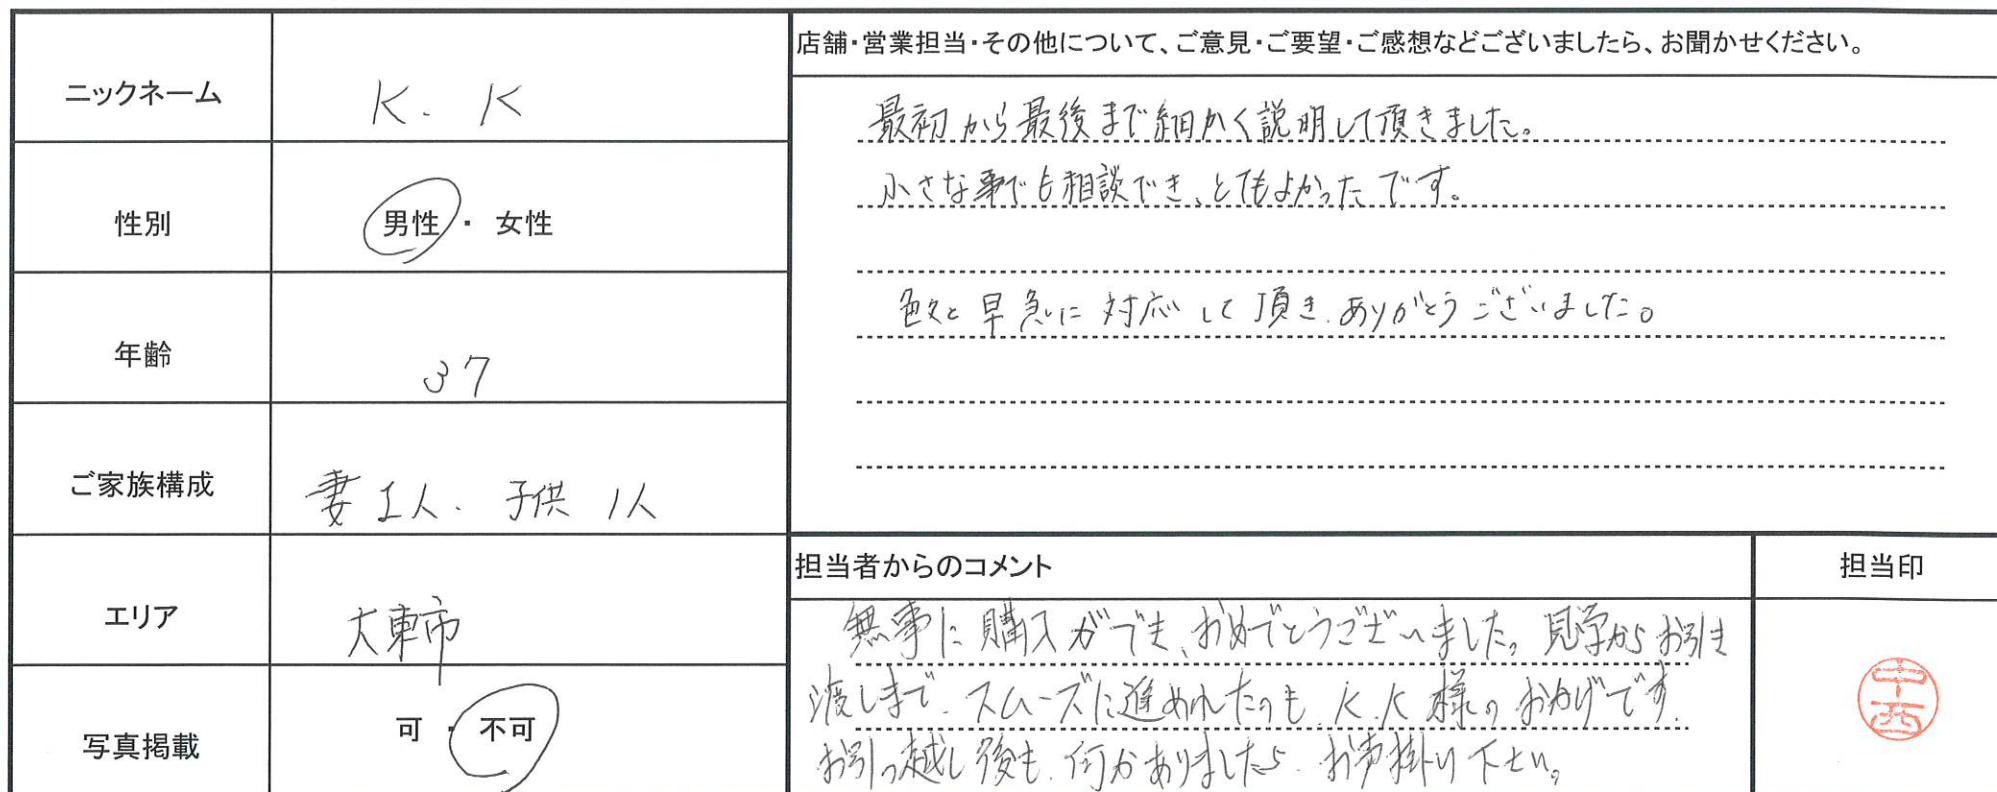 ニックネーム
K. K
性別
男性・女性
年齢
37
ご家族構成
妻1人. 子供 1人
エリア
大東市
写真掲載
可・不可
店舗・営業担当・その他について、ご意見・ご要望・ご感想などございましたら、お聞かせください。
最初から最後まで細かく説明して頂きました。
小さな事でも相談でき、とてもよかったです。
色々と早急に対応して頂き、ありがとうございました。
担当者からのコメント
無事に購入ができ、おめでとうございました。見学からお引き
渡しまで、スムーズに進めれたのも、K.K様のおかげです。
お引っ越し後も、何かありましたら、お声掛け下さい。
担当印
中西